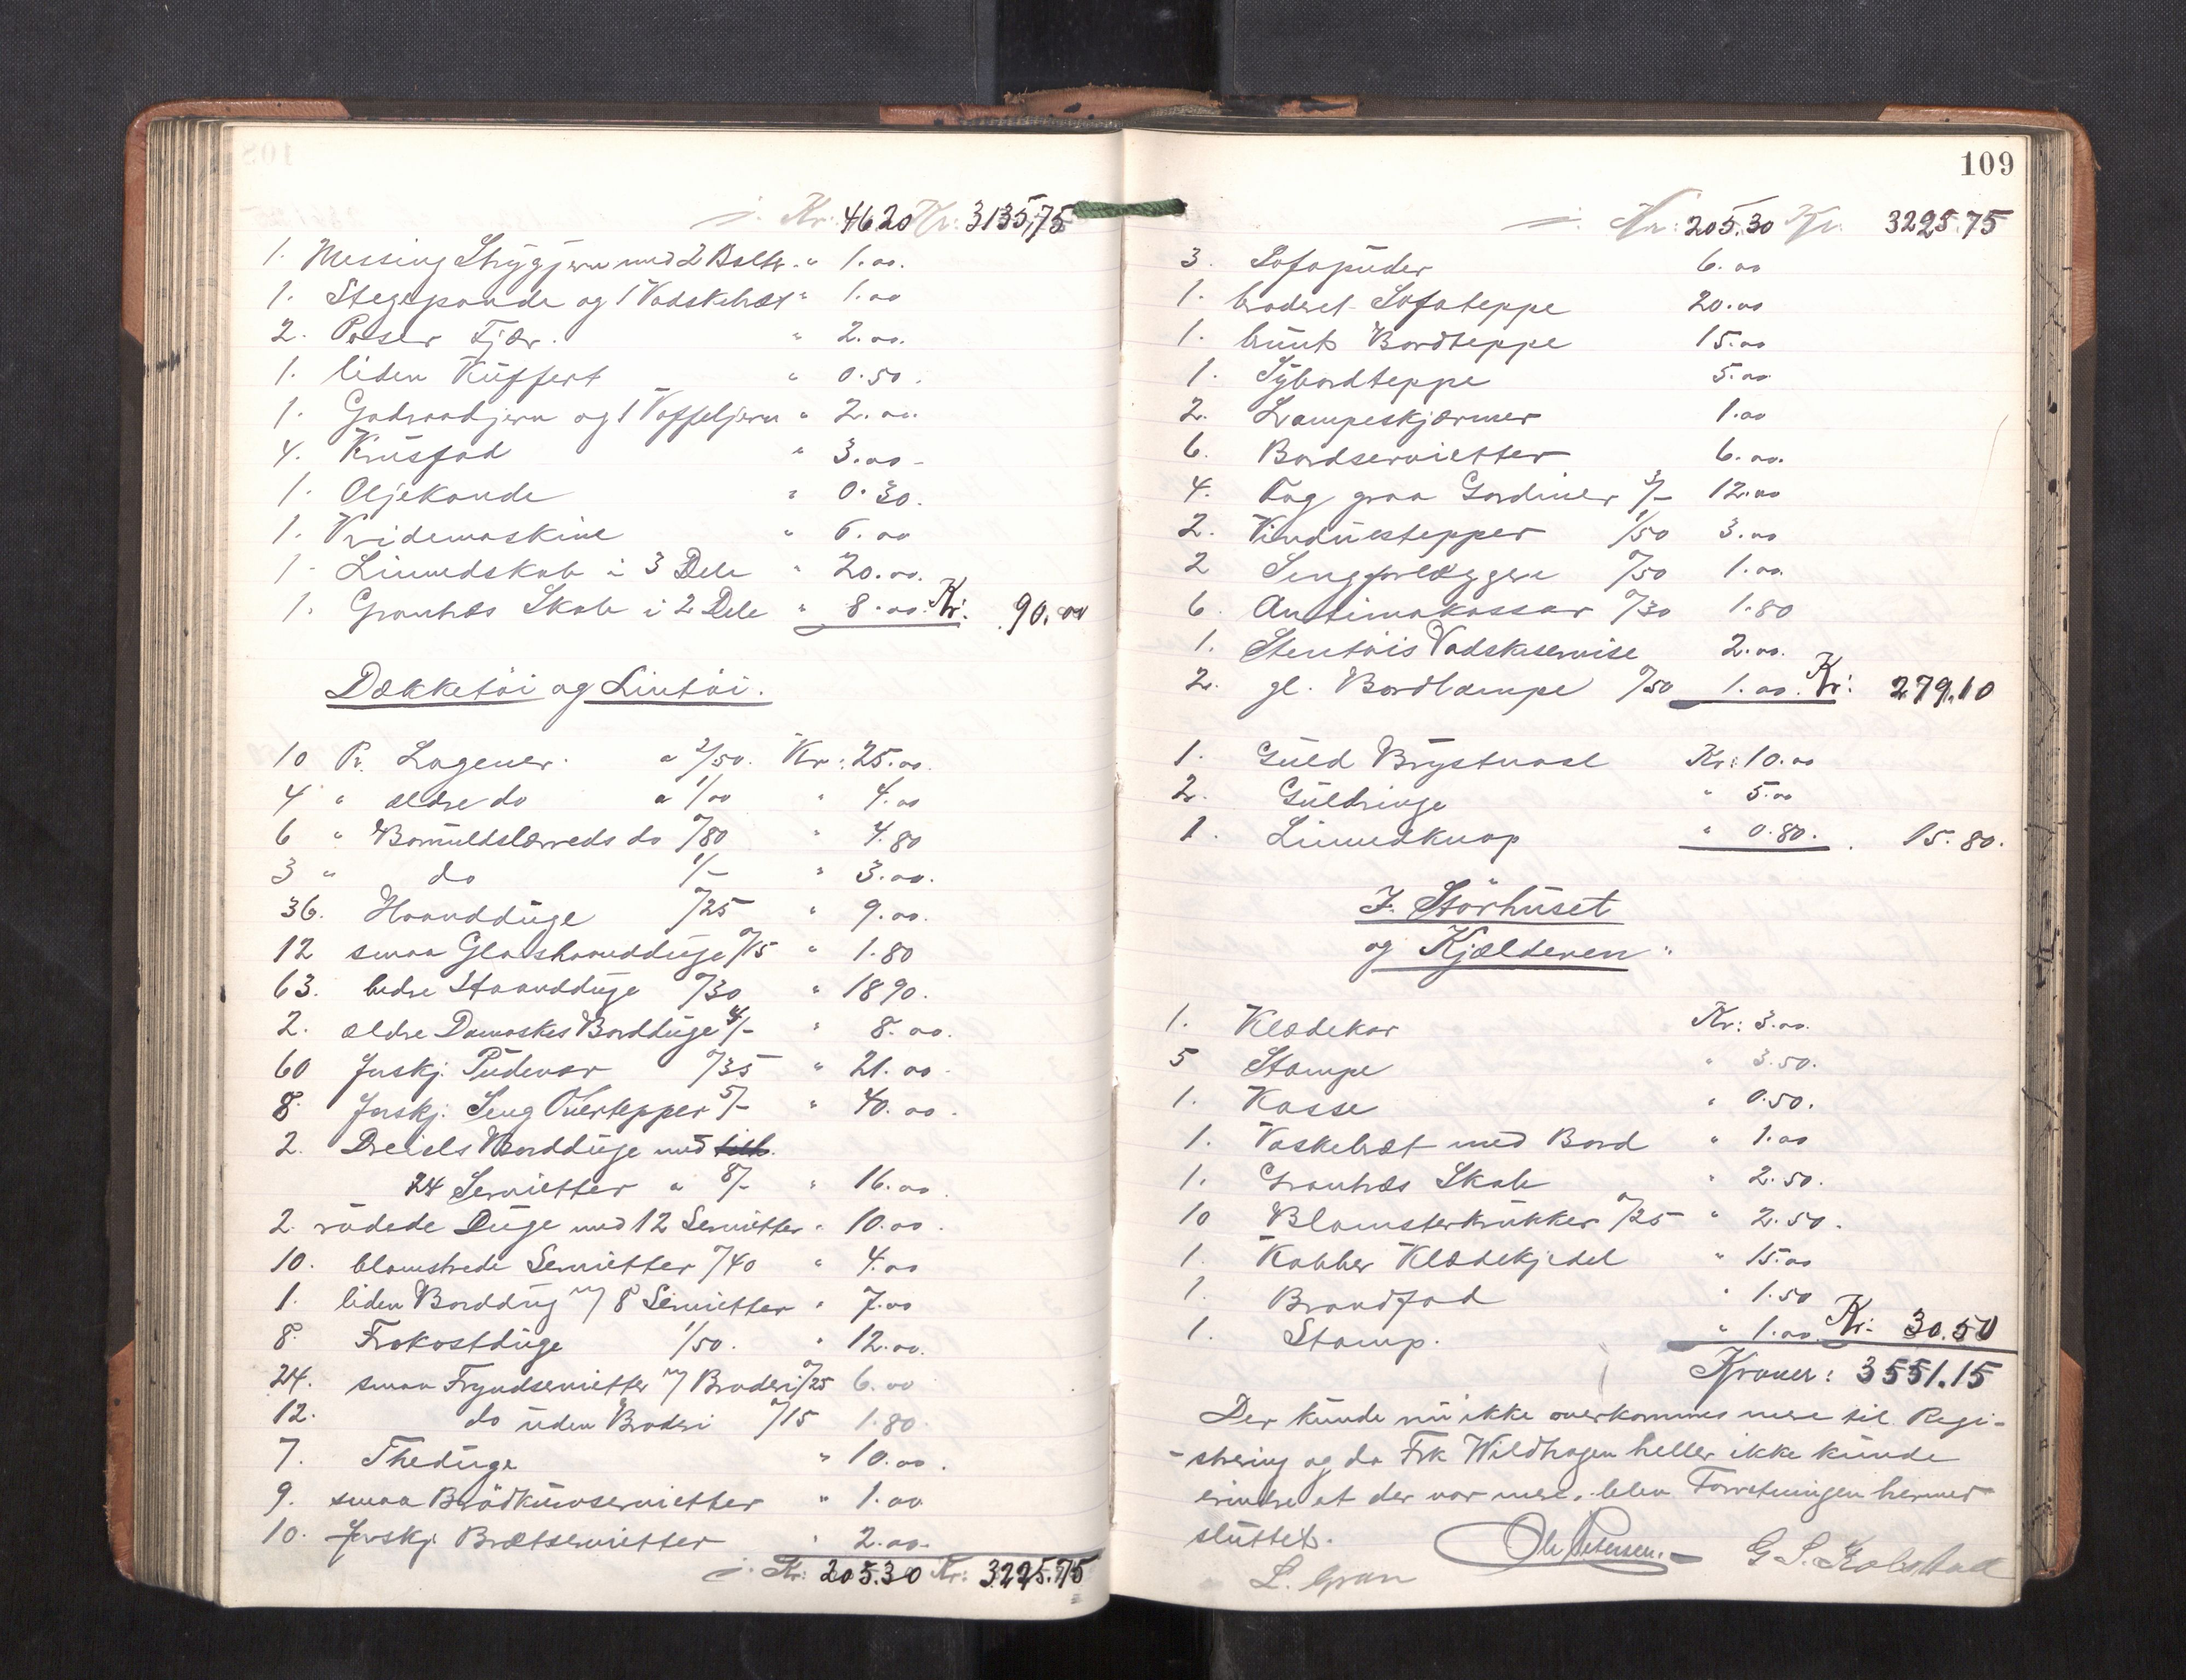 j. Kr: 46.20 Kr: 3135,75
1. Messing Strygjern med 2 Bolte " 1.00.
1. Stegepande og 1 Vadskebræt " 1.00
2. Poser Fjær. " 2.00.
1. liden Kuffert " 0.50.
1. Godraadjern og 1 Vaffeljern " 2.00.
4. Krusfad " 3.00-
1. Oljekande " 0.30.
1. Vridemaskine " 6.00
1. Linnedskab i 3 Dele " 20.00.
1. Grantræs Skab i 2 Dele " 8.00. Kr: 90.00
Dækketøi og Lintøi.
10 Pr. Lagener. a 2/50. Kr: 25.00.
4 " ældre do a 1/00 " 4.00
6 " Bomuldslærreds do 0/80 " 4.80
3 " do 1/- " 3.00.
36. Haandduge 0/25 " 9.00.
12 smaa Glashaandduge 0/15 " 1.80
63. bedre Haandduge 0/30 " 18.90.
2. ældre Damaskes Bordduge 4/- " 8.00.
60 forskj. Pudevar 0/35 " 21.00-
8. forskj. Seng Overtepper 5/- " 40.00.
2. Dreiels Bordduge med till.
24 Servietter a 8/- " 16.00.
2. rudede Duge med 12 Servietter " 10.00.
10. blomstrede Servietter 0/40 " 4.00
1. liden Borddug m/ 8 Servietter " 7.00
8. Frokostduge 1/50. " 12.00.
24. smaa Servietter m/ Broderi 0/25 6.00
12. do uden Broderi 0/15 1.80
7. Theduge " 10.00.
9. smaa Brødkurvservietter " 1.00
10. forskj. Brætservietter " 2.00.
j. Kr: 205.30 Kr: 3225.75
109
j. Kr: 205.30 Kr. 3225.75
3. Sofapuder 6.00
1. broderet Sofateppe 20.00
1. bunt Bordteppe 15.00
1. Sybordteppe 5.00
2. Lampeskjærmer 1.00
6. Bordservietter 6.00.
4. Fag graa Gardiner 3/- 12.00
2. Vinduestepper 1/50 3.00
2 Sengforlæggere 0/50 1.00.
6. Antimakassar 0/30 1.80
1. Stentøis Vadskeservise 2.00.
2. gl. Bordlampe 0/50 1.00. Kr: 279.10
1. Guld Brystnaal Kr: 10.00
2. Guldringe " 5.00
1. Linnedknap " 0.80. 15.80.
I. Størhuset
og Kjælderen "
1. Klædekar Kr: 3.00.
5 Stampe " 3.50.
1. Kasse " 0.50.
1. Vaskebræt med Bord " 1.00
1. Grantræs Skab " 2.50.
10 Blomsterkrukker 0/25 " 2.50.
1. Kobber Klædekjedel " 15.00
1. Brandfad " 1.50
1. Stamp. " 1.00. Kr: 30.50
Kroner: 3551.15
Der kunde nu ikke overkommes mere til Regi-
-strering og da Frk Wildhagen heller ikke kunde
erindre at der var mere, blev Forretningen hermed
sluttet.
Ole Petersen. G S. Kolstad
L. Gran